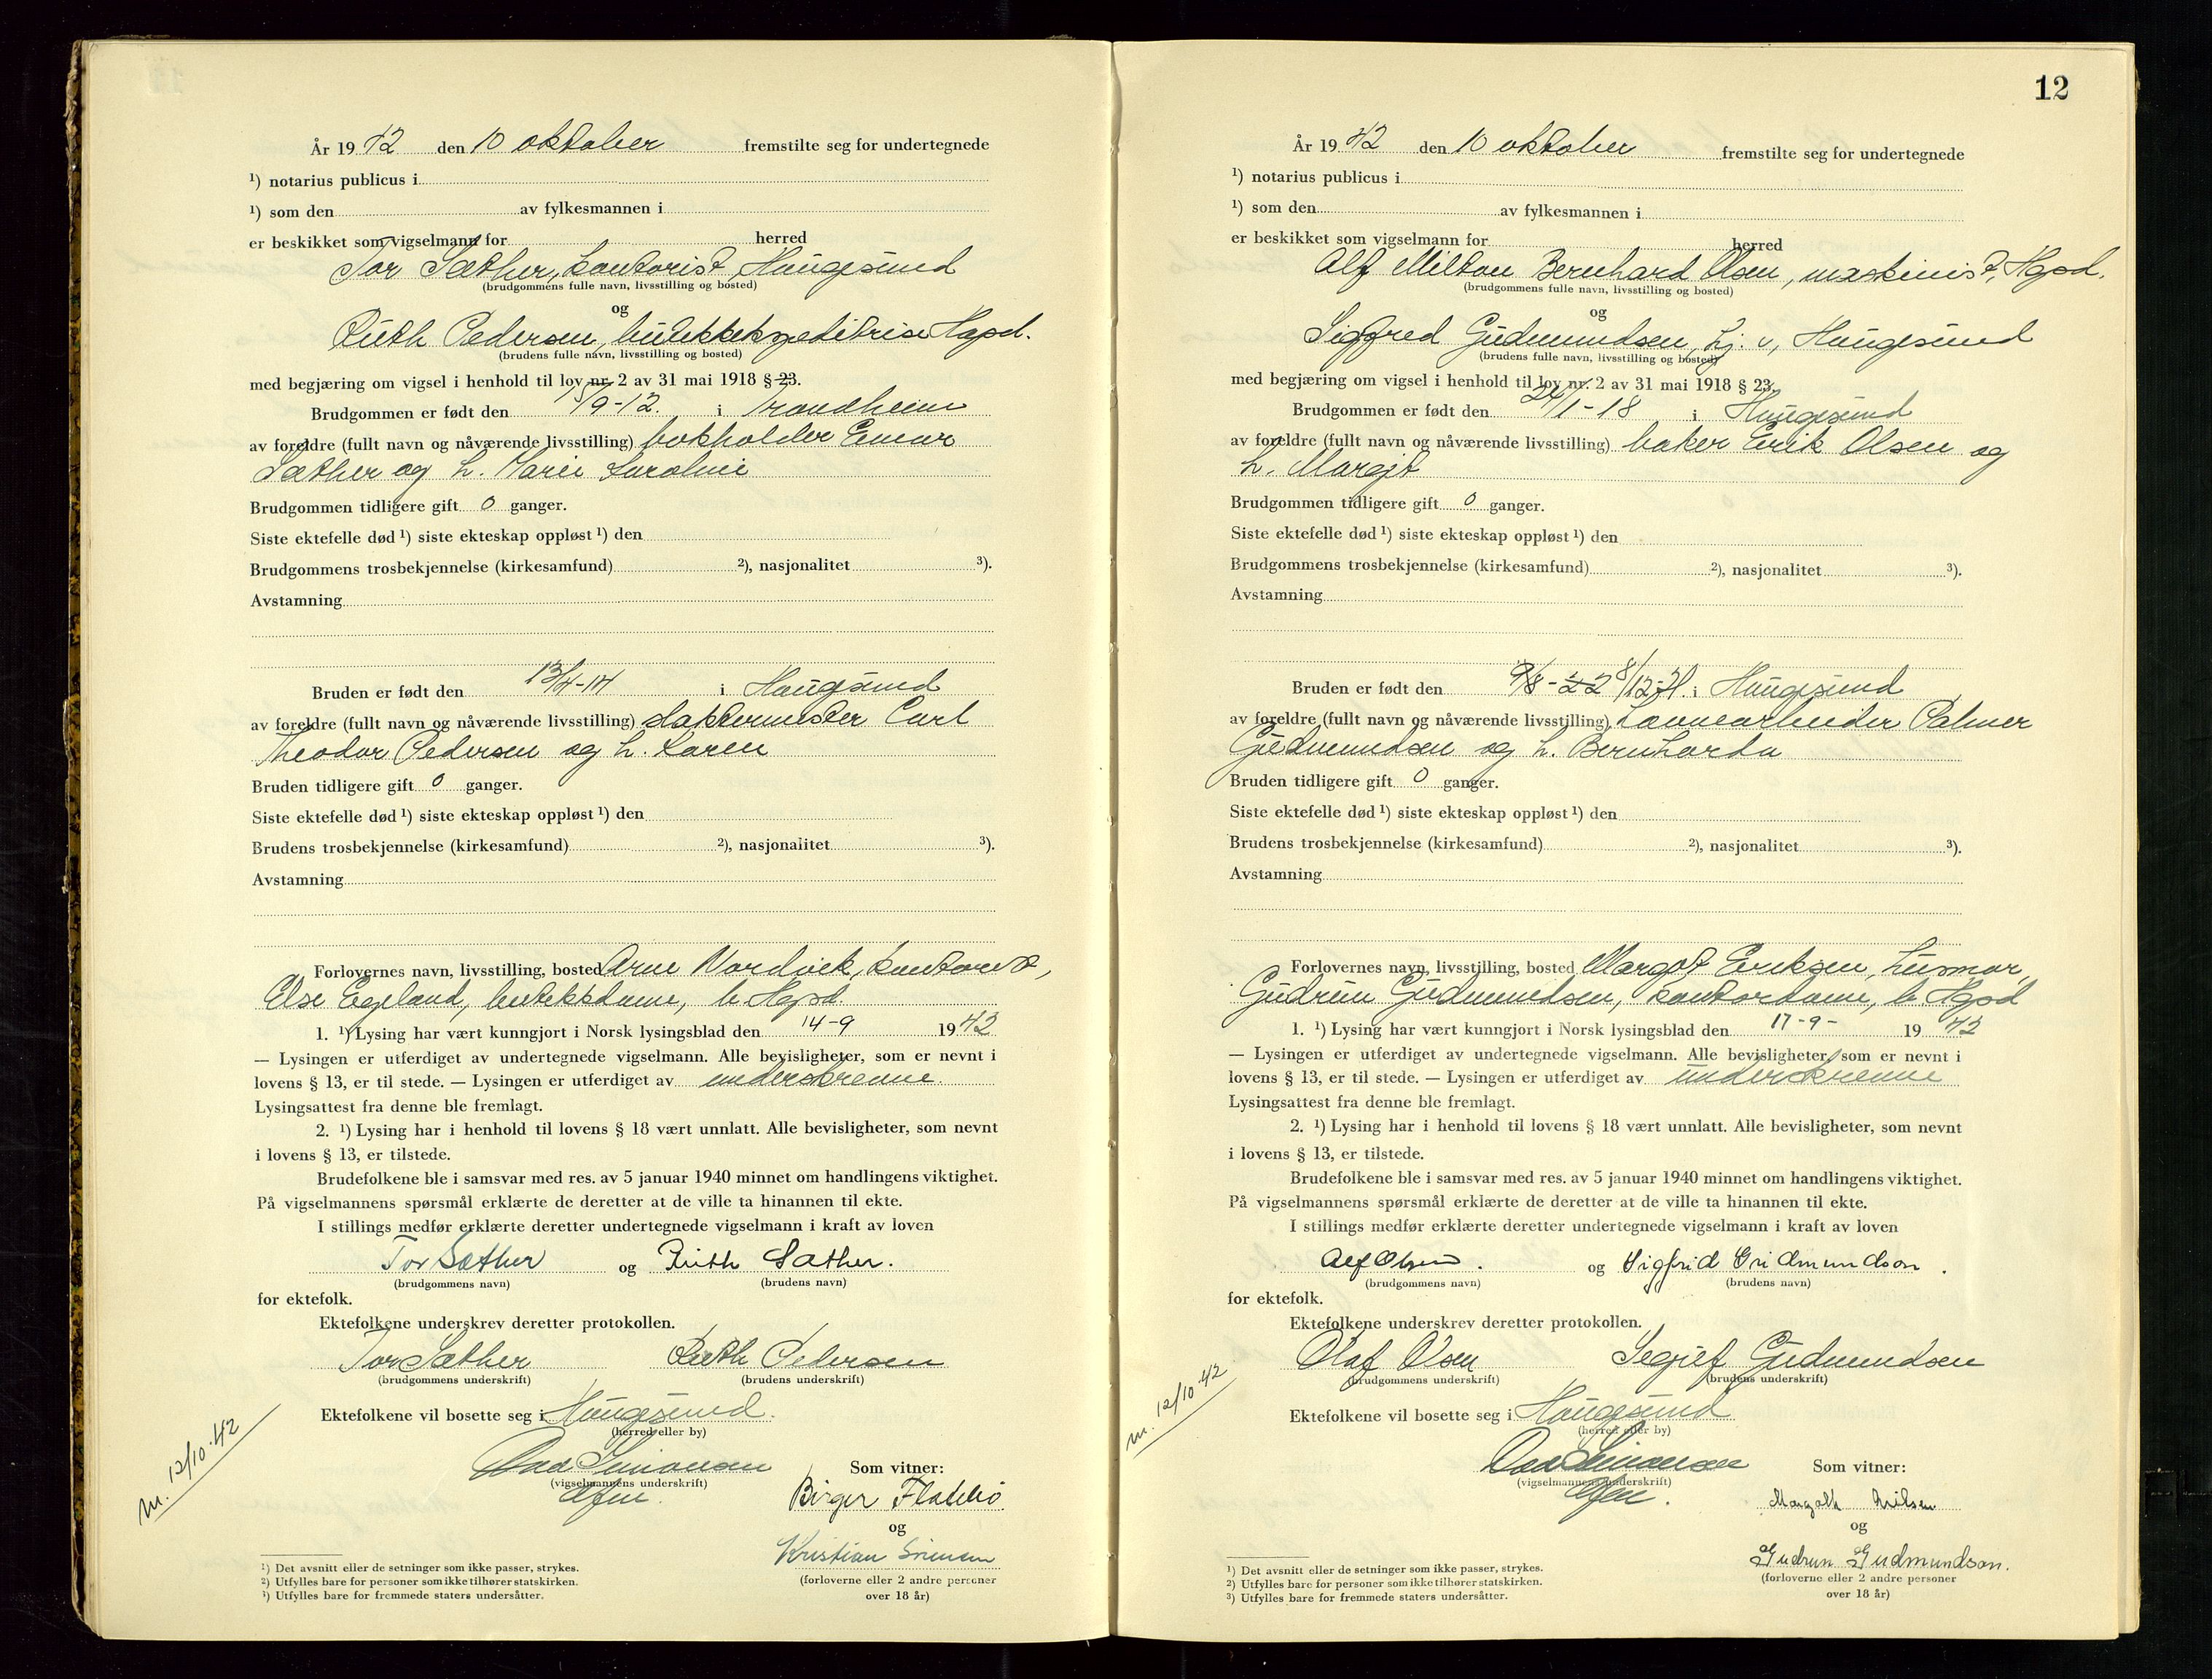 År 1942 den 10 oktober fremstilte seg for undertegnede
¹) notarius publicus i
¹) som den av fylkesmannen i
er beskikket som vigselmann for herred
Tor Sæther, kontorist, Haugesund
(brudgommens fulle navn, livsstilling og bosted)
og
Ruth Pedersen, butikkekspeditrise Hgsd.
(brudens fulle navn, livsstilling og bosted)
med begjæring om vigsel i henhold til lov nr. 2 av 31 mai 1918 § 23.
Brudgommen er født den /9-12. i Trondheim
av foreldre (fullt navn og nåværende livsstilling) bokholder Einar
Sæther og h. Marie Karoline
Brudgommen tidligere gift 0 ganger.
Siste ektefelle død ¹) siste ekteskap oppløst ¹) den
Brudgommens trosbekjennelse (kirkesamfund) ²), nasjonalitet ³).
Avstamning
Bruden er født den 13/4-14 i Haugesund
av foreldre (fullt navn og nåværende livsstilling) slaktermester Carl
Theodor Pedersen og h. Karen
Bruden tidligere gift 0 ganger.
Siste ektefelle død ¹) siste ekteskap oppløst ¹) den
Brudens trosbekjennelse (kirkesamfund) ²), nasjonalitet ³).
Avstamning
Forlovernes navn, livsstilling, bosted Arne Nordvik, kontorist,
Else Egeland, butikkdame, b. Hgsd.
1. ¹) Lysing har vært kunngjort i Norsk lysingsblad den 14-9 1942
— Lysingen er utferdiget av undertegnede vigselmann. Alle bevisligheter, som er nevnt i
lovens § 13, er til stede. — Lysingen er utferdiget av underskrevne.
Lysingsattest fra denne ble fremlagt.
2. ¹) Lysing har i henhold til lovens § 18 vært unnlatt. Alle bevisligheter, som nevnt
i lovens § 13, er tilstede.
Brudefolkene ble i samsvar med res. av 5 januar 1940 minnet om handlingens viktighet.
På vigselmannens spørsmål erklærte de deretter at de ville ta hinannen til ekte.
I stillings medfør erklærte deretter undertegnede vigselmann i kraft av loven
Tor Sæther og Ruth Sæther.
(brudgommens navn) (brudens navn)
for ektefolk.
Ektefolkene underskrev deretter protokollen.
Tor Sæther Ruth Pedersen
(brudgommens underskrift) (brudens underskrift)
Ektefolkene vil bosette seg i Haugesund.
(herred eller by)
m. 12/10 42
Simonsen Som vitner:
(vigselmannens underskrift)
Birger
og
Kristian
(forloverne eller 2 andre personer
over 18 år)
¹) Det avsnitt eller de setninger som ikke passer, strykes.
²) Utfylles bare for personer som ikke tilhører statskirken.
³) Utfylles bare for fremmede staters undersåtter.
12
År 1942 den 10 oktober fremstilte seg for undertegnede
¹) notarius publicus i
¹) som den av fylkesmannen i
er beskikket som vigselmann for herred
Alf Milton Bernhard Olsen, maskinist, Hgsd.
(brudgommens fulle navn, livsstilling og bosted)
og
Sigfred Gudmundsen, hj. v, Haugesund
(brudens fulle navn, livsstilling og bosted)
med begjæring om vigsel i henhold til lov nr. 2 av 31 mai 1918 § 23.
Brudgommen er født den 24/1-18 i Haugesund
av foreldre (fullt navn og nåværende livsstilling) baker Erik Olsen og
h. Margit
Brudgommen tidligere gift 0 ganger.
Siste ektefelle død ¹) siste ekteskap oppløst ¹) den
Brudgommens trosbekjennelse (kirkesamfund) ²), nasjonalitet ³).
Avstamning
Bruden er født den 8/12-21. i Haugesund
av foreldre (fullt navn og nåværende livsstilling) tønnearbeider Palmer
Gudmundsen og h. Bernharda
Bruden tidligere gift 0 ganger.
Siste ektefelle død ¹) siste ekteskap oppløst ¹) den
Brudens trosbekjennelse (kirkesamfund) ²), nasjonalitet ³).
Avstamning
Forlovernes navn, livsstilling, bosted Margot Eriksen, husmor,
Gudrun Gudmundsen, kontordame, b. Hgsd
1. ¹) Lysing har vært kunngjort i Norsk lysingsblad den 17-9- 1942
— Lysingen er utferdiget av undertegnede vigselmann. Alle bevisligheter, som er nevnt i
lovens § 13, er til stede. — Lysingen er utferdiget av underskrevne
Lysingsattest fra denne ble fremlagt.
2. ¹) Lysing har i henhold til lovens § 18 vært unnlatt. Alle bevisligheter, som nevnt
i lovens § 13, er tilstede.
Brudefolkene ble i samsvar med res. av 5 januar 1940 minnet om handlingens viktighet.
På vigselmannens spørsmål erklærte de deretter at de ville ta hinannen til ekte.
I stillings medfør erklærte deretter undertegnede vigselmann i kraft av loven
Alf Olsen. og Sigfrid Gudmundson.
(brudgommens navn) (brudens navn)
for ektefolk.
Ektefolkene underskrev deretter protokollen.
Olaf Olsen Gudmundsen
(brudgommens underskrift) (brudens underskrift)
Ektefolkene vil bosette seg i Haugesund
(herred eller by)
m. 12/10 42
Simonsen Som vitner:
(vigselmannens underskrift)
og
Gudrun Gudmundson.
(forloverne eller 2 andre personer
over 18 år)
¹) Det avsnitt eller de setninger som ikke passer, strykes.
²) Utfylles bare for personer som ikke tilhører statskirken.
³) Utfylles bare for fremmede staters undersåtter.